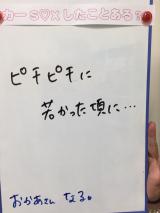 カーS♡Xしたことある?
ピチピチに
若かった頃に…
おかあさん なる。